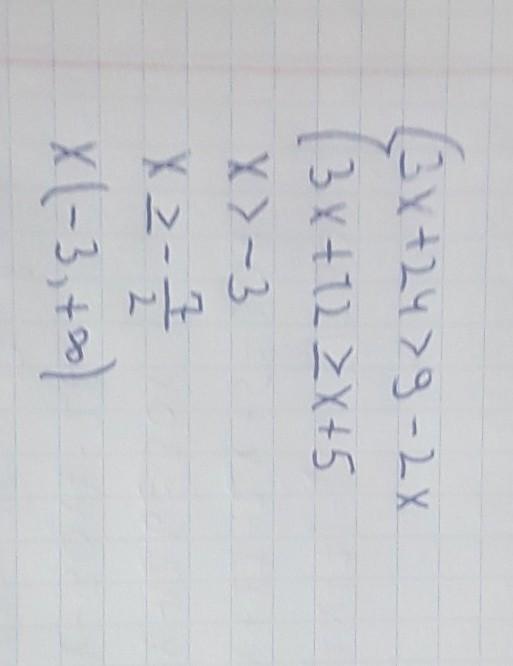 {3x+24>9-2x
3x+12≥x+5
x>-3
x≥-7/2
x(-3,+∞)